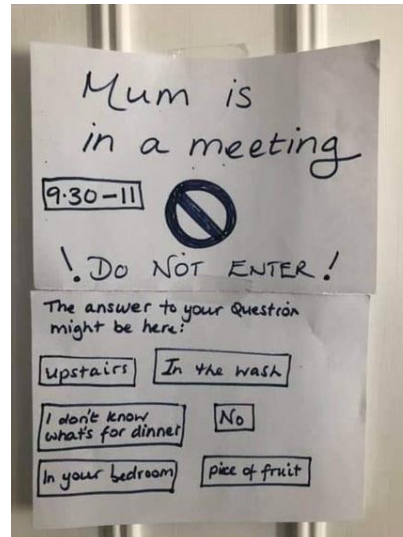 Mum is
in a meeting
9.30-11
! DO NOT ENTER !
The answer to your Question
might be here:
upstairs
In the wash
I don't know
what's for dinner
No
In your bedroom
pice of fruit